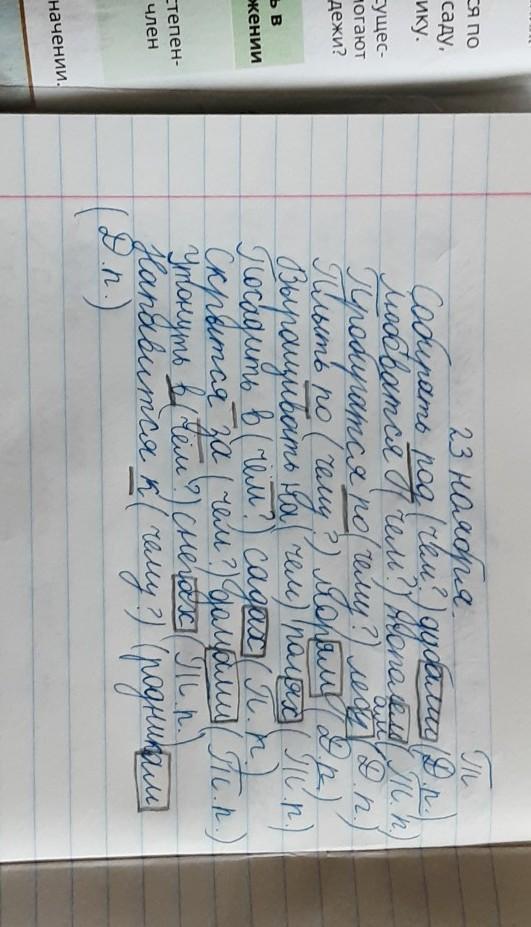 ся по
саду,
ику.
сущес-
могают
дежи?
ь в
жении
степен-
член
значении.
23 ноября.
Собирать под (чем?) дубами (Д.п.)
Любоватся (чем?) (Т.п.)
Пробиратся по (чему?) (Д.п.)
Плыть по (чему?) морям (Д.п.)
Выращивать на (чем) полях (Т.п.)
Посадить в (чем?) садах (П.п.)
Скрытся за (чем?) домами (Т.п.)
утонуть в (чём?) снегах (Т.п.)
Напавится к (чему?) (родникам
(Д.п.)